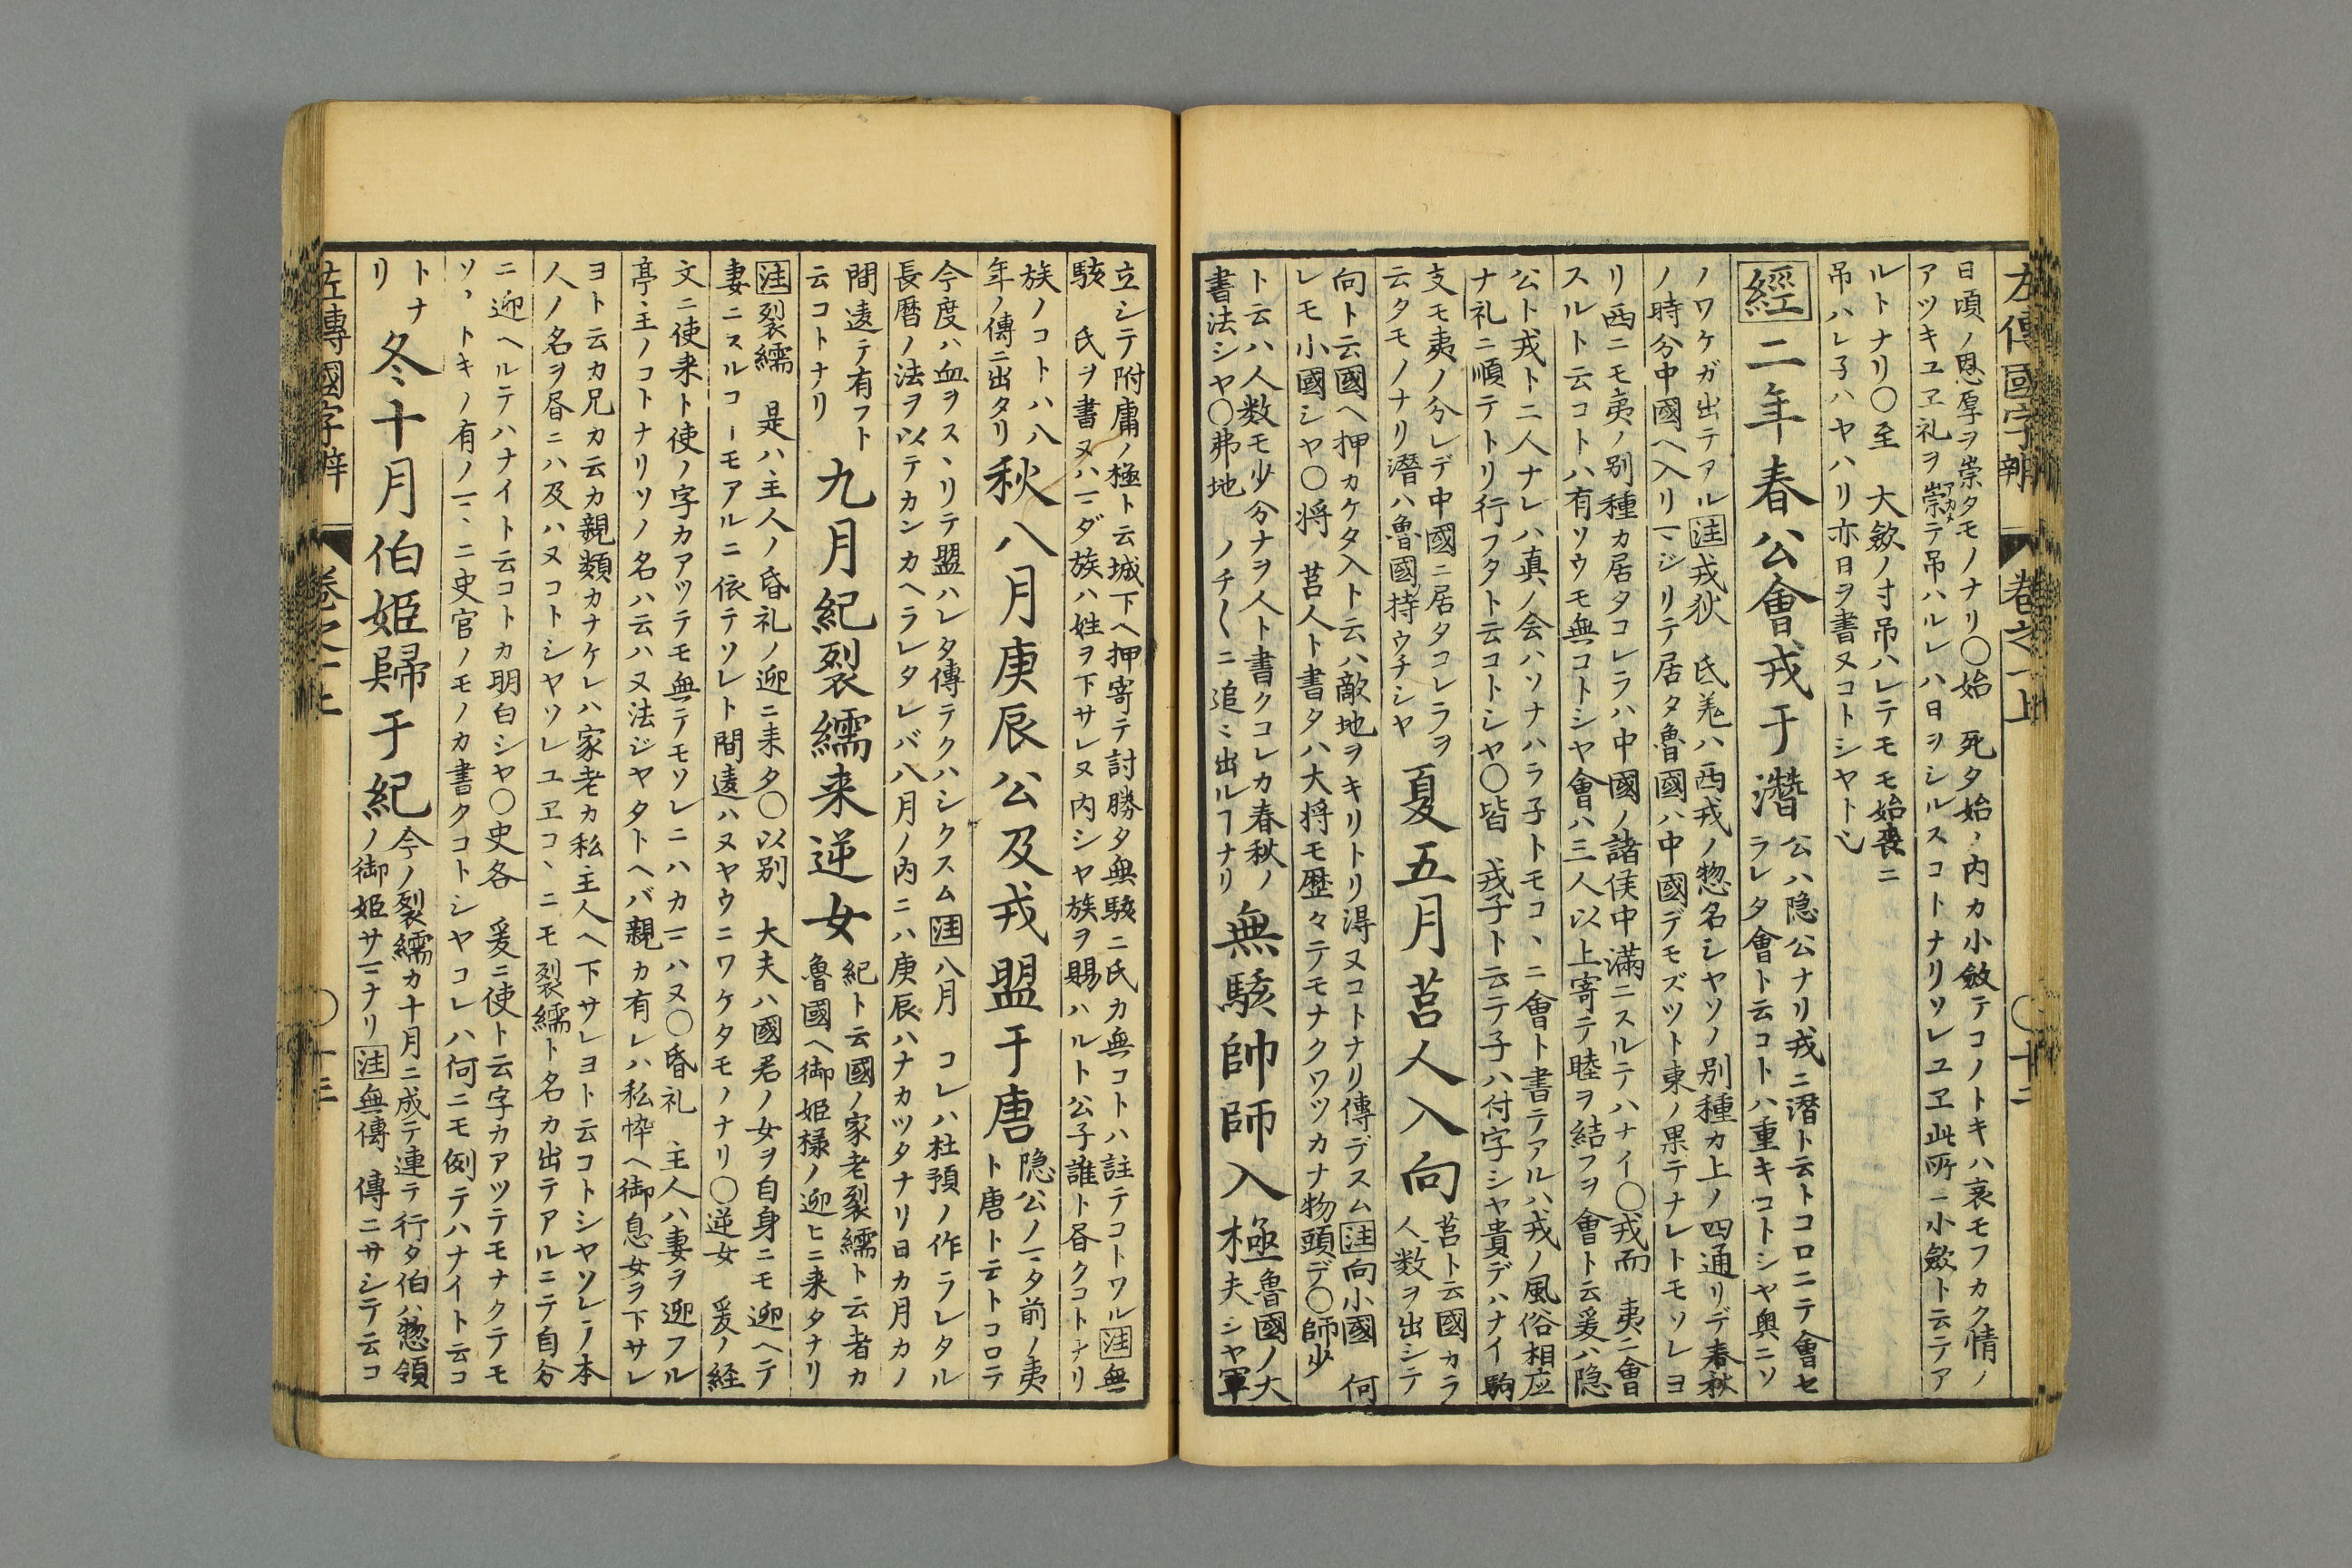 左傳國字辨 卷之一上 〇十二
日頃ノ恩厚ヲ崇タモノナリ〇始 死タ始ヽ内カ小斂テコノトキハ哀モフカク情ノ
アツキユヱ礼ヲ崇テ吊ハルレハ日ヲシルスコトナリソレユヱ此所ニ小斂ト云テア
ルトナリ〇至 大斂ノ寸吊ハレテモモ始喪ニ
吊ハレ子ハヤハリ亦日ヲ書ヌコトシヤト也
經二年春公會戎于潛
公ハ隐公ナリ戎ニ潛ト云トコロニテ會セ
ラレタ會ト云コトハ重キコトシヤ奥ニソ
ノワケガ出テアル注戎狄 氐羌ハ西戎ノ惣名シヤソノ別種カ上ノ四通リデ春秋
ノ時分中國ヘ入リマジリテ居タ魯國ハ中國デモズツト東ノ果テナレトモソレヨ
リ西ニモ夷ノ別種カ居タコレラハ中國ノ諸侯中満ニスルテハナイ〇戎而 夷ニ會
スルト云コトハ有ソウモ無コトシヤ會ハ三人以上寄テ睦ヲ結フヲ會ト云爰ハ隐
公ト戎ト二人ナレハ真ノ会ハソナハラ子トモコヽニ會ト書テアルハ戎ノ風俗相应
ナ礼ニ順テトリ行フタト云コトシヤ〇皆 戎子ト云テ子ハ付字シヤ貴デハナイ駒
支モ夷ノ分レデ中國ニ居タコレラヲ
云タモノナリ潛ハ魯國持ウチシヤ
夏五月莒人入向
莒ト云國カラ
人数ヲ出シテ
向ト云國ヘ押カケタ入ト云ハ敵地ヲキリトリ得ヌコトナリ傳デスム注向小國 何
レモ小國シヤ〇将 莒人ト書タハ大将モ歴々テモナクワツカナ物頭デ〇師少
ト云ハ人数モ少分ナヲ人ト書クコレカ春秋ノ
書法シヤ〇弗地 ノチ〱ニ追ミ出ルヿナリ
無駭帥師入極
魯國ノ大
夫シヤ軍
立シテ附庸ノ極ト云城下ヘ押寄テ討勝タ無駭ニ氏カ無コトハ註テコトワル注無
駭 氏ヲ書ヌハマダ族ハ姓ヲ下サレヌ内シヤ族ヲ賜ハルト公子誰ト各クコトナリ
族ノコトハ八
年ノ傳ニ出タリ
秋八月庚辰公及戎盟于唐
隐公ノマタ前ノ夷
ト唐ト云トコロテ
今度ハ血ヲスヽリテ盟ハレタ傳テクハシクスム注八月 コレハ杜預ノ作ラレタル
長暦ノ法ヲ以テカンカヘラレタレバ八月ノ内ニハ庚辰ハナカツタナリ日カ月カノ
間逺テ有フト
云コトナリ
九月紀裂繻来逆女
紀ト云國ノ家老裂繻ト云者カ
魯國ヘ御姫様ノ迎ヒニ来タナリ
注裂繻 是ハ主人ノ昏礼ノ迎ニ来タ〇以别 大夫ハ國君ノ女ヲ自身ニモ迎ヘテ
妻ニスルコーモアルニ依テソレト間逺ハヌヤウニワケタモノナリ〇逆女 爰ノ経
文ニ使来ト使ノ字カアツテモ無テモソレニハカマハヌ〇昏礼 主人ハ妻ヲ迎フル
亭主ノコトナリソノ名ハ云ハヌ法ジヤタトヘバ親カ有レハ私忰ヘ御息女ヲ下サレ
ヨト云カ兄カ云カ親類カナケレハ家老カ私主人ヘ下サレヨト云コトシヤソレテ本
人ノ名ヲ昏ニハ及ハヌコトシヤソレユヱコヽニモ裂繻ト名カ出テアルニテ自分
ニ迎ヘルテハナイト云コトカ明白シヤ〇史各 爰ニ使ト云字カアツテモナクテモ
ソヽトキノ有ノマヽニ史官ノモノカ書クコトシヤコレハ何ニモ例テハナイト云コ
トナ
リ
冬十月伯姫歸于紀
今ノ裂繻カ十月ニ成テ連テ行タ伯ハ惣領
ノ御姫サマナリ注無傳 傳ニサシテ云コ
左傳國字辨 卷之一上 〇十三